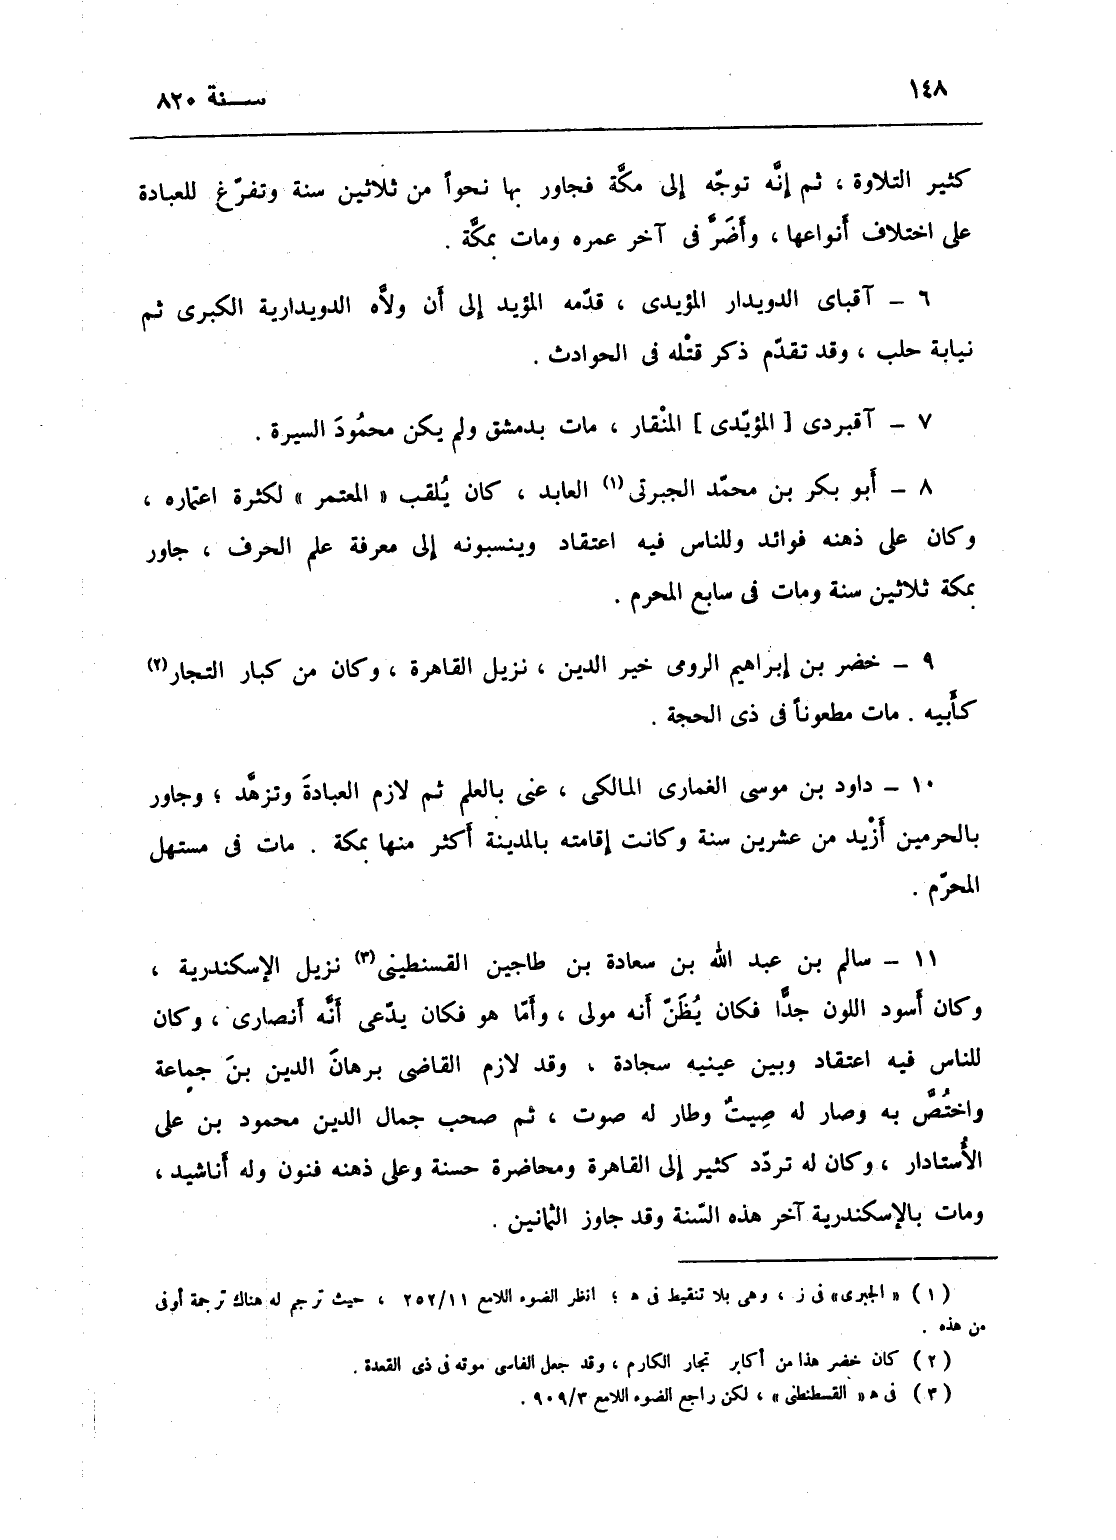 ١٤٨
سـنة ٨٢٠
كثير التلاوة ، ثم إنَّه توجّه إلى مكَّة فجاور بها نحواً من ثلاثين سنة وتفرّغ للعبادة
على اختلاف أنواعها ، وأَضَرَّ فى آخر عمره ومات بمكَّة .
٦ – آقباى الدويدار المؤيدى ، قدّمه المؤيد إلى أَن ولاَّه الدويدارية الكبرى ثم
نيابة حلب ، وقد تقدّم ذكر قتْله فى الحوادث .
٧ – آقبردى [ المؤيّدى ] المنْقار ، مات بدمشق ولم يكن محمُودَ السيرة .
٨ – أَبو بكر بن محمّد الجبرتى(١) العابد ، كان يُلقب « المعتمر » لكثرة اعتماره ،
وكان على ذهنه فوائد وللناس فيه اعتقاد وينسبونه إلى معرفة علم الحرف ، جاور
بمكة ثلاثين سنة ومات فى سابع المحرم .
٩ – خضر بن إبراهيم الرومى خير الدين ، نزيل القاهرة ، وكان من كبار التجار(٢)
كأَبيه . مات مطعوناً فى ذى الحجة .
١٠ – داود بن موسى الغمارى المالكى ، عنى بالعلم ثم لازم العبادةَ وتزهَّد ؛ وجاور
بالحرمين أَزْيد من عشرين سنة وكانت إقامته بالمدينة أَكثر منها بمكة . مات فى مستهل
المحرّم .
١١ – سالم بن عبد الله بن سعادة بن طاجين القسنطينى(٣) نزيل الإسكندرية ،
وكان أَسود اللون جدًّا فكان يُظَنّ أَنه مولى ، وأَمّا هو فكان يدّعى أَنَّه أَنصارى ، وكان
للناس فيه اعتقاد وبين عينيه سجادة ، وقد لازم القاضى برهانَ الدين بنَ جماعة
واختُصَّ به وصار له صِيتٌ وطار له صوت ، ثم صحب جمال الدين محمود بن على
الأُستادار ، وكان له تردّد كثير إلى القاهرة ومحاضرة حسنة وعلى ذهنه فنون وله أَناشيد ،
ومات بالإسكندرية آخر هذه السّنة وقد جاوز الثمانين .
(١) « الجبرى» فى ز ، وهى بلا تنقيط فى ه ؛ انظر الضوء اللامع ٢٥٢/١١ ، حيث ترجم له هناك ترجمة أوفى
من هذه .
(٢) كان خضر هذا من أكابر تجار الكارم ، وقد جعل الفاسى موته فى ذى القعدة .
(٣) فى ه « القسطنطى » ، لكن راجع الضوء اللامع ٩٠٩/٣ .